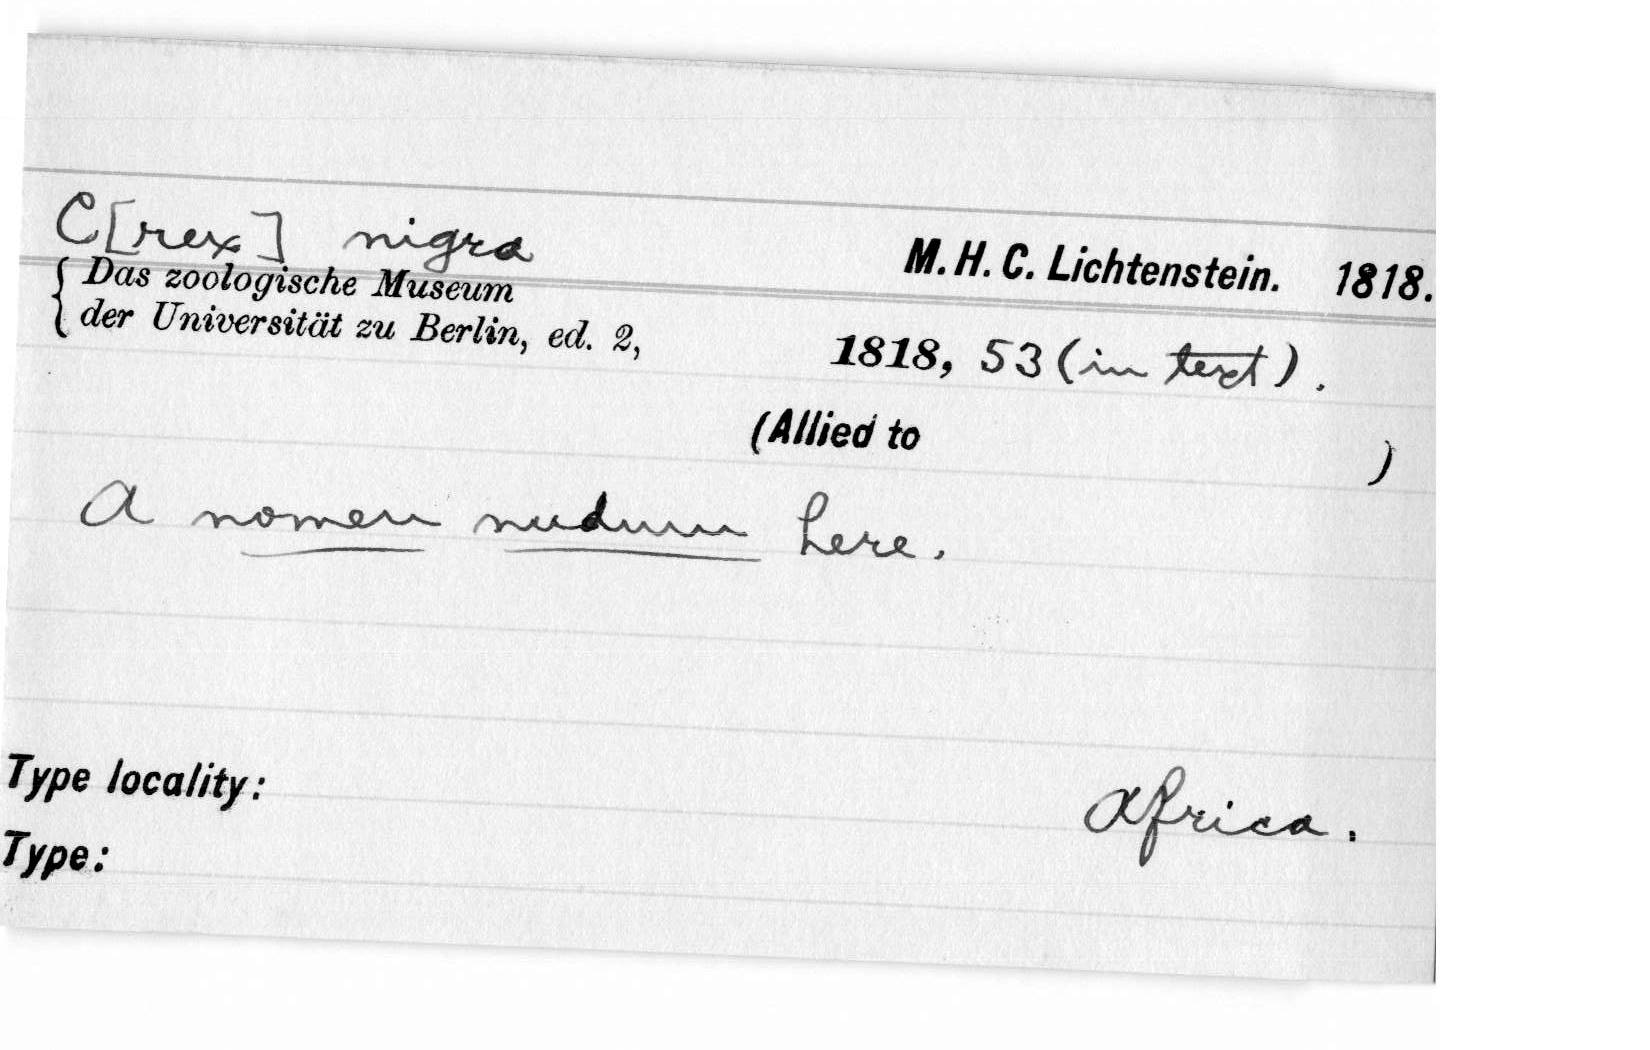 C[rex] nigra M. H. C. Lichtenstein. 1818.
{ Das zoologische Museum
der Universität zu Berlin, ed. 2, 1818, 53 (in text).
(Allied to )
A nomen nudum here.
Type locality: Africa.
Type: